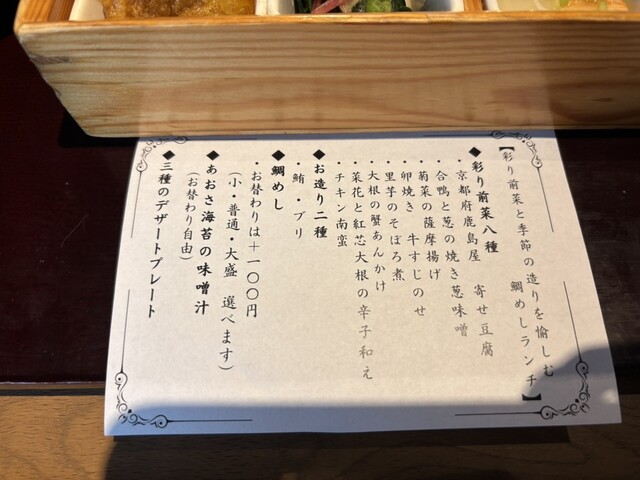 【彩り前菜と季節の造りを愉しむ
鯛めしランチ】
◆彩り前菜八種
・京都府鹿島屋　寄せ豆腐
・合鴨と葱の焼き葱味噌
・菊菜の薩摩揚げ
・卵焼き　牛すじのせ
・里芋のそぼろ煮
・大根の蟹あんかけ
・菜花と紅芯大根の辛子和え
・チキン南蛮
◆お造り二種
・鮪　・ブリ
◆鯛めし
・お替わりは＋一〇〇円
（小・普通・大盛　選べます）
◆あおさ海苔の味噌汁
（お替わり自由）
◆三種のデザートプレート